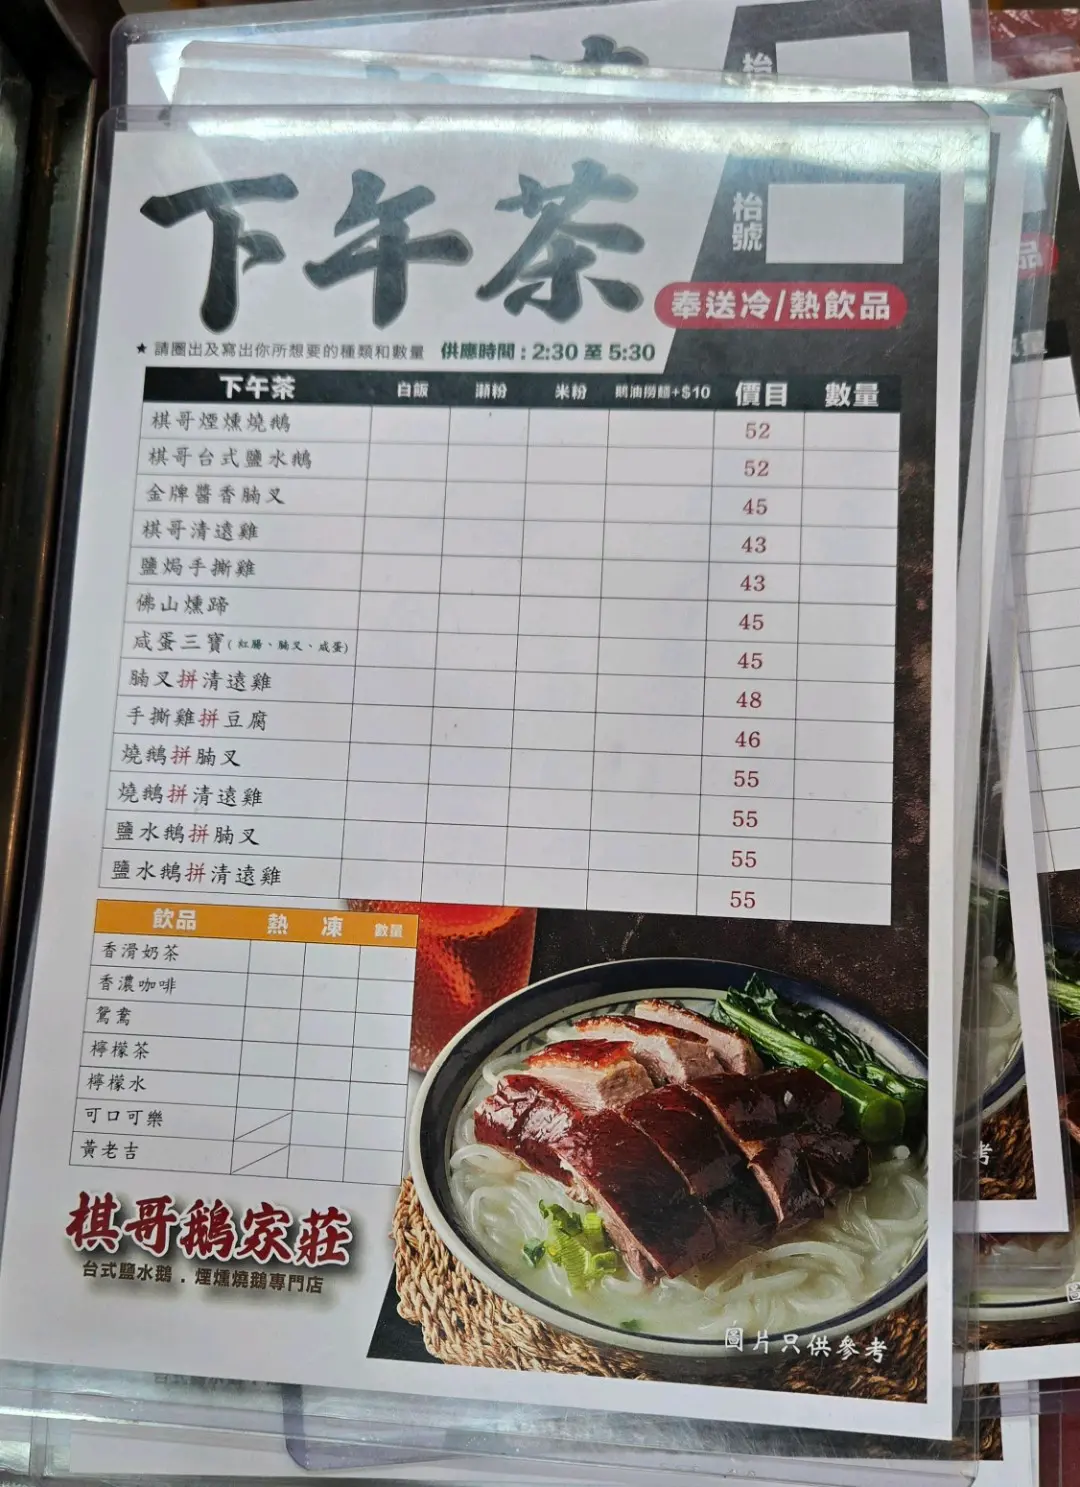 下午茶
枱號
奉送冷/熱飲品
★ 請圈出及寫出你所想要的種類和數量 供應時間：2:30 至 5:30
下午茶 白飯 瀨粉 米粉 鵝油撈麵+$10 價目 數量
棋哥煙燻燒鵝 52
棋哥台式鹽水鵝 52
金牌醬香腩叉 45
棋哥清遠雞 43
鹽焗手撕雞 43
佛山燻蹄 45
咸蛋三寶(紅腸、腩叉、咸蛋) 45
腩叉拼清遠雞 48
手撕雞拼豆腐 46
燒鵝拼腩叉 55
燒鵝拼清遠雞 55
鹽水鵝拼腩叉 55
鹽水鵝拼清遠雞 55
飲品 熱 凍 數量
香滑奶茶
香濃咖啡
鴛鴦
檸檬茶
檸檬水
可口可樂
黃老吉
棋哥鵝家莊
台式鹽水鵝．煙燻燒鵝專門店
圖片只供參考